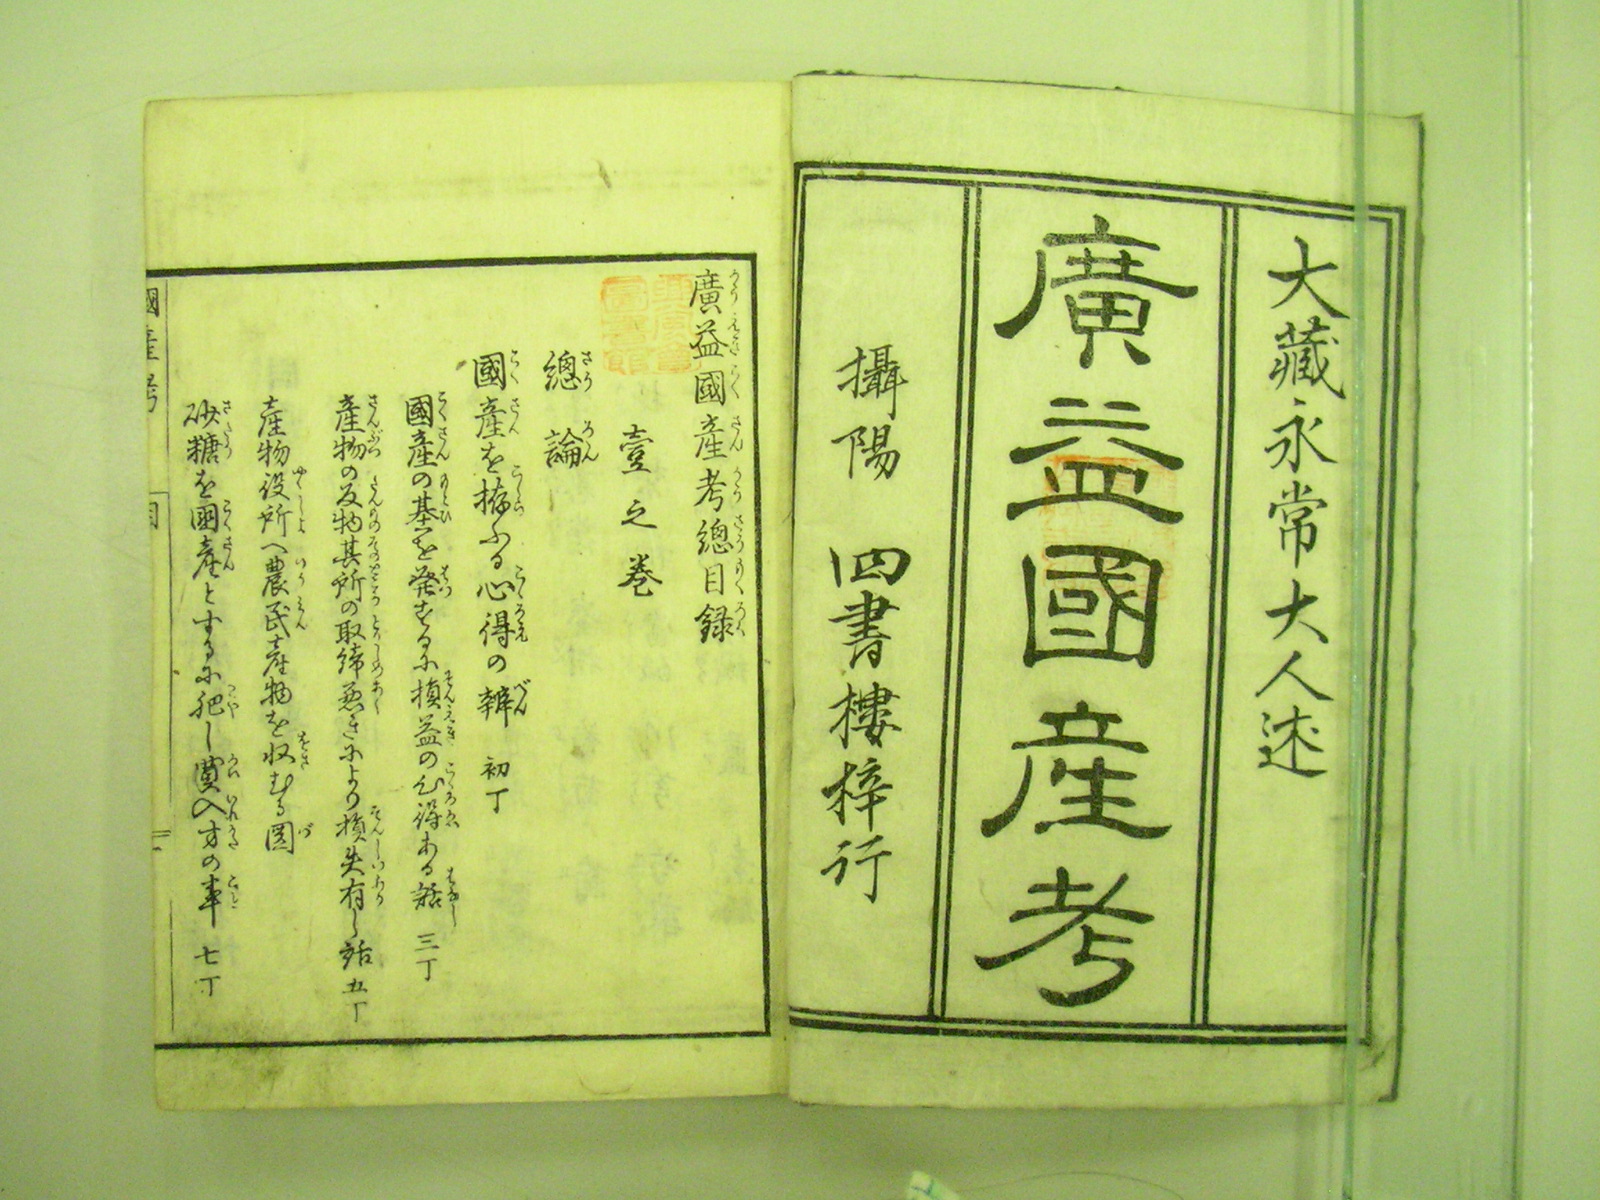 大藏永常大人述
廣益國産考
攝陽 四書樓梓行
廣益國産考總目録
壹之巻
總論
國産を拵ふる心得の辨 初丁
國産の基を発するに損益の心得ある話 三丁
産物の反物其所の取締悪きにより損失有し話 五丁
産物役所へ農民産物を収むる圖
砂糖を国産とするに肥し買入方の事 七丁
國産考
目